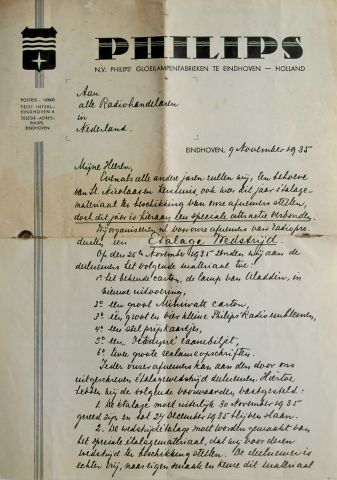 PHILIPS
N.V. PHILIPS' GLOEILAMPENFABRIEKEN TE EINDHOVEN — HOLLAND
POSTREK.: 140600
TELEF. INTERL.:
EINDHOVEN A
TELEGR.-ADRES:
PHILIPS,
EINDHOVEN.
Aan
alle Radiohandelaren
in
Nederland.
EINDHOVEN, 9 November 1935
Mijne Heeren,
Evenals alle andere jaren zullen wij, ten behoeve
van St. Nicolaas en Kerstmis, ook voor dit jaar étalage-
materiaal ter beschikking van onze afnemers stellen,
doch dit jaar is hieraan een speciale attractie verbonden.
Wij organiseeren nl. voor onze afnemers van radiopro-
ducten een Etalage Wedstrijd.
Op den 25sten November 1935 zenden wij aan de
deelnemers het volgende materiaal toe:
1º het bekende carton, de lamp van Aladdin, in
nieuwe uitvoering,
2º een groot Miniwatt carton,
3º één groot en vier kleine Philips Radio emblemen,
4º een stel prijskaartjes,
5º een raambiljet,
6º twee groote reclameopschriften.
Ieder onzer afnemers kan aan den door ons
uitgeschreven étalagewedstrijd deelnemen. Hiertoe
hebben wij de volgende voorwaarden vastgesteld:
1. De étalage moet uiterlijk 30 November 1935
gereed zijn en tot 24 December 1935 blijven staan.
2. De wedstrijdétalage moet worden gemaakt van
het speciale étalagemateriaal, dat wij voor dezen
wedstrijd ter beschikking stellen. De deelnemer is
echter vrij, naar eigen smaak en keuze dit materiaal